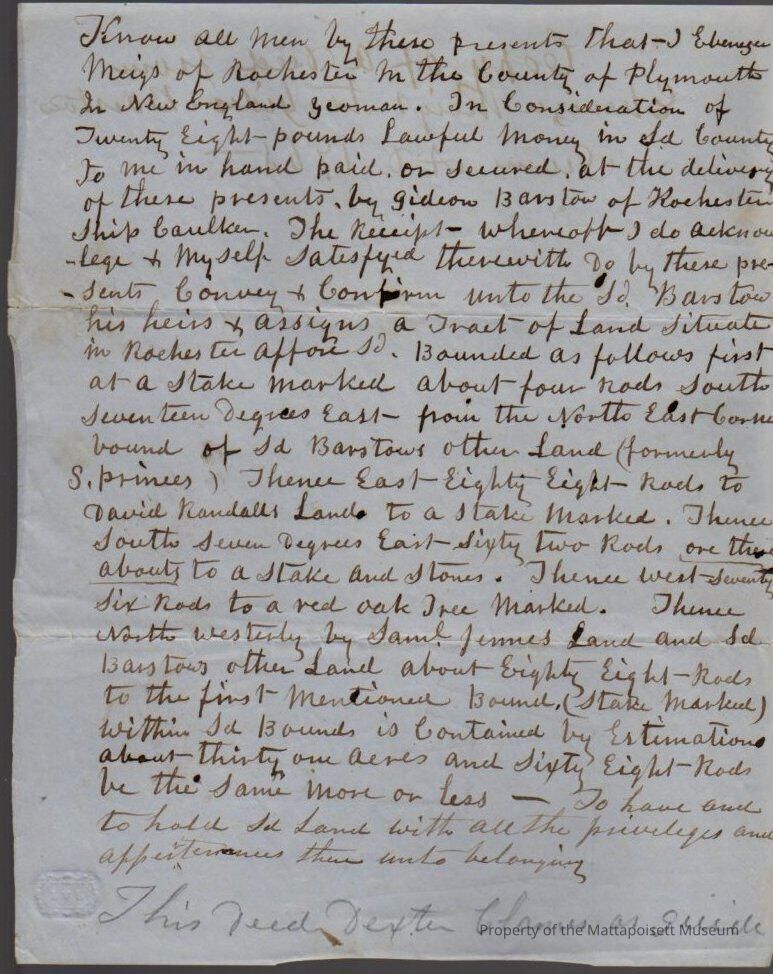 Know all men by these presents that I Ebenezer
Meigs of Rochester In the County of Plymouth
In New England yeoman. In Consideration of
Twenty Eight pounds Lawful Money in sd County
To me in hand paid, or secured, at the delivery
of these presents, by Gideon Barstow of Rochester
Ship Caulker. The Receipt whereoff I do acknow
-lege & Myself Satisfyed therewith Do by these pre-
-sents Convey & Confirm unto the Sd. Barstow
his heirs & assigns a Tract of Land Situate
in Rochester affore Sd. Bounded as follows first
at a Stake marked about four Rods South
Seventeen Degrees East from the North East Corne
bound of Sd Barstows other Land (formerly
S. princes) Thence East Eighty Eight Rods to
David Randalls Land to a Stake Marked. Thence
South Seven Degrees East Sixty two Rods ore there
abouts to a Stake and Stones. Thence west Seventy
Six Rods to a red oak Tree Marked. Thence
North westerly by Saml. Jennes Land and Sd
Barstows other Land about Eighty Eight Rods
to the first Mentioned Bound, (Stake Marked)
within Sd Bounds is Contained by Estimation
about thirty one Acres and Sixty Eight Rods
be the Same more or less — To have and
to hold Sd Land with all the privileges and
appertenences there unto belonging
This Deed Dexter Claims as
Property of the Mattapoisett Museum